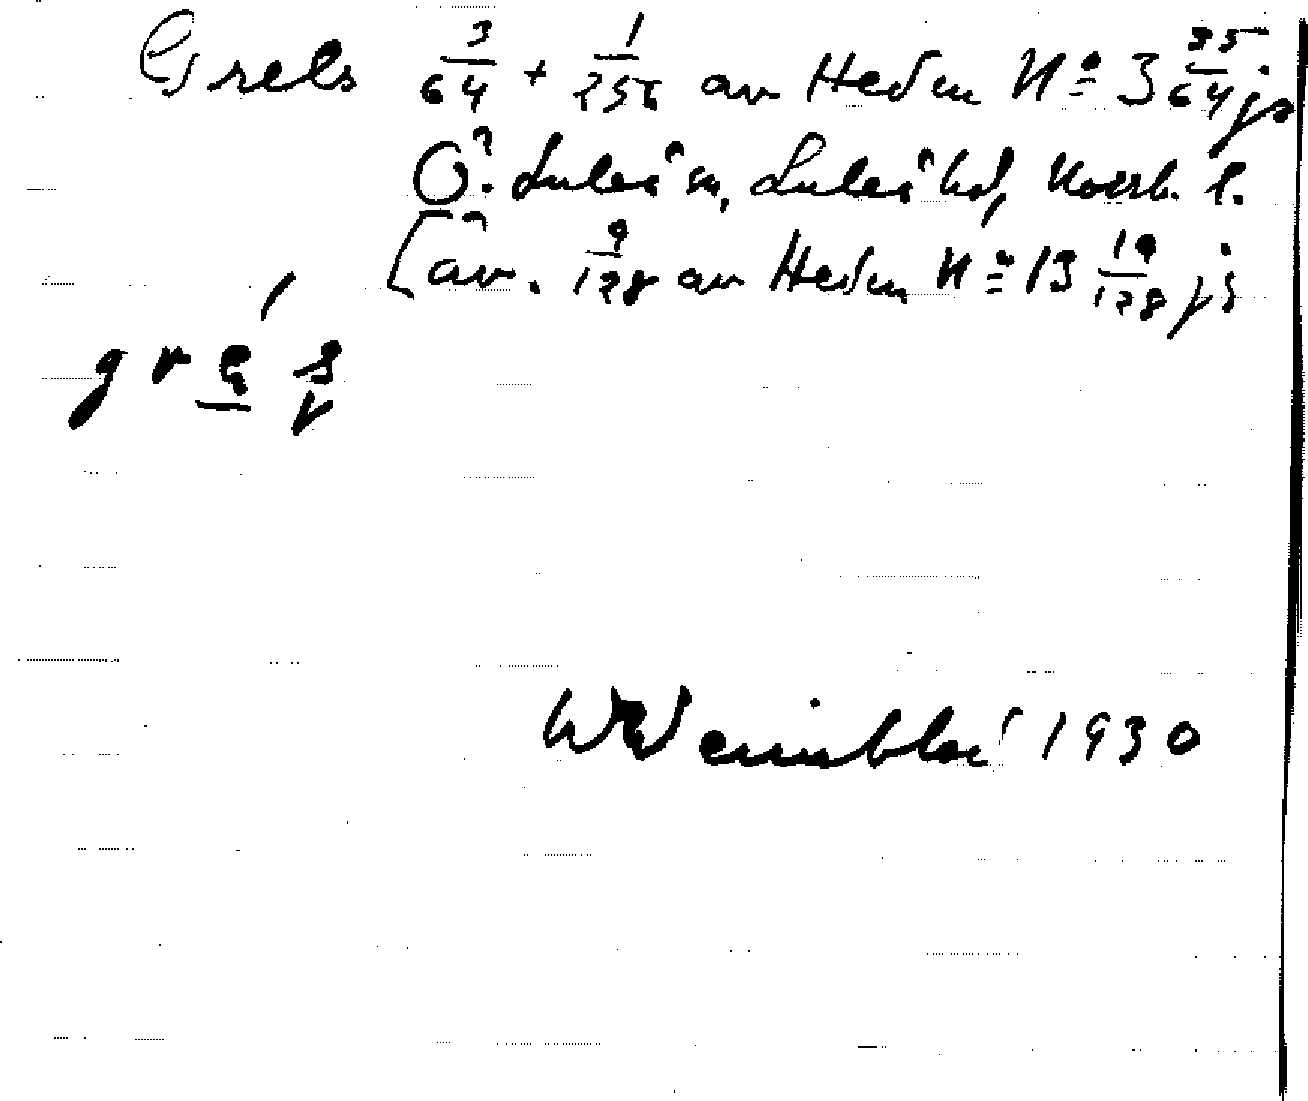 Grels 3/64 + 1/256 av Heden Nº 3 35/64 js
Ö. Luleå sn, Luleå hd, Norrb. l.
[äv. 9/128 av Heden Nº 13 19/128 js
1930